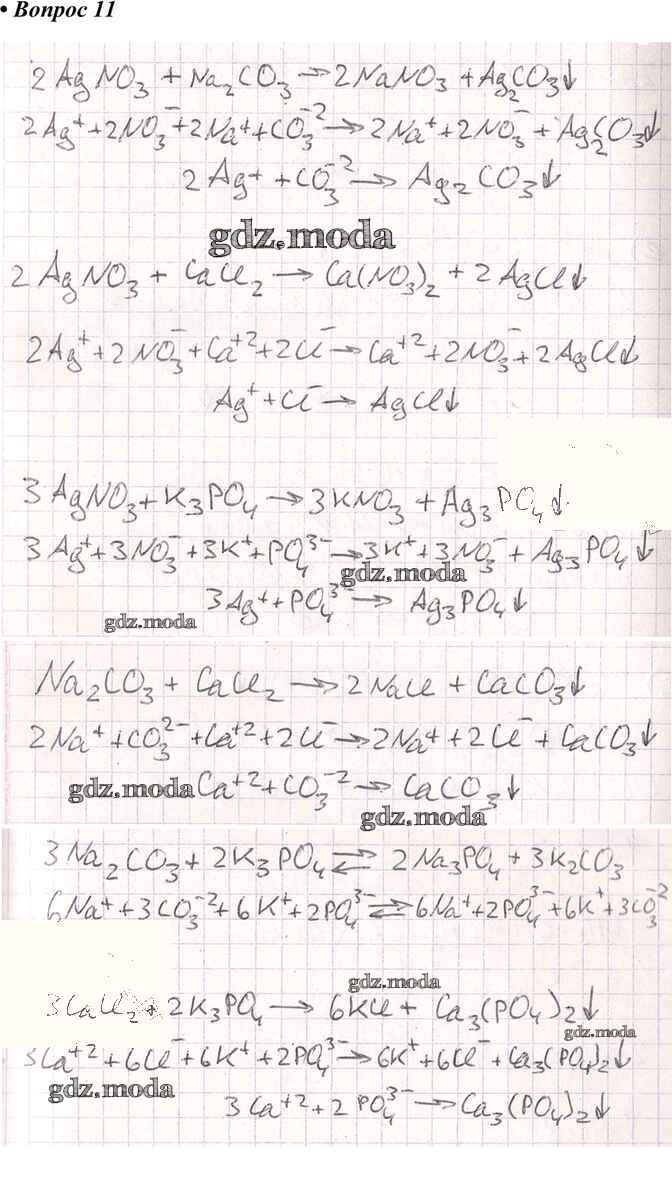 • Вопрос 11
2AgNO₃ + Na₂CO₃ → 2NaNO₃ + Ag₂CO₃↓
2Ag⁺ + 2NO₃⁻ + 2Na⁺ + CO₃⁻² → 2Na⁺ + 2NO₃⁻ + Ag₂CO₃↓
2Ag⁺ + CO₃⁻² → Ag₂CO₃↓
gdz.moda
2AgNO₃ + CaCl₂ → Ca(NO₃)₂ + 2AgCl↓
2Ag⁺ + 2NO₃⁻ + Ca⁺² + 2Cl⁻ → Ca⁺² + 2NO₃⁻ + 2AgCl↓
Ag⁺ + Cl⁻ → AgCl↓
3AgNO₃ + K₃PO₄ → 3KNO₃ + Ag₃PO₄↓
3Ag⁺ + 3NO₃⁻ + 3K⁺ + PO₄³⁻ → 3K⁺ + 3NO₃⁻ + Ag₃PO₄↓
gdz.moda
3Ag⁺ + PO₄³⁻ → Ag₃PO₄↓
gdz.moda
Na₂CO₃ + CaCl₂ → 2NaCl + CaCO₃↓
2Na⁺ + CO₃²⁻ + Ca⁺² + 2Cl⁻ → 2Na⁺ + 2Cl⁻ + CaCO₃↓
gdz.moda Ca⁺² + CO₃⁻² → CaCO₃↓
gdz.moda
3Na₂CO₃ + 2K₃PO₄ ⇄ 2Na₃PO₄ + 3K₂CO₃
6Na⁺ + 3CO₃⁻² + 6K⁺ + 2PO₄³⁻ ⇄ 6Na⁺ + 2PO₄³⁻ + 6K⁺ + 3CO₃⁻²
gdz.moda
3CaCl₂ + 2K₃PO₄ → 6KCl + Ca₃(PO₄)₂↓
gdz.moda
3Ca⁺² + 6Cl⁻ + 6K⁺ + 2PO₄³⁻ → 6K⁺ + 6Cl⁻ + Ca₃(PO₄)₂↓
gdz.moda
3Ca⁺² + 2PO₄³⁻ → Ca₃(PO₄)₂↓